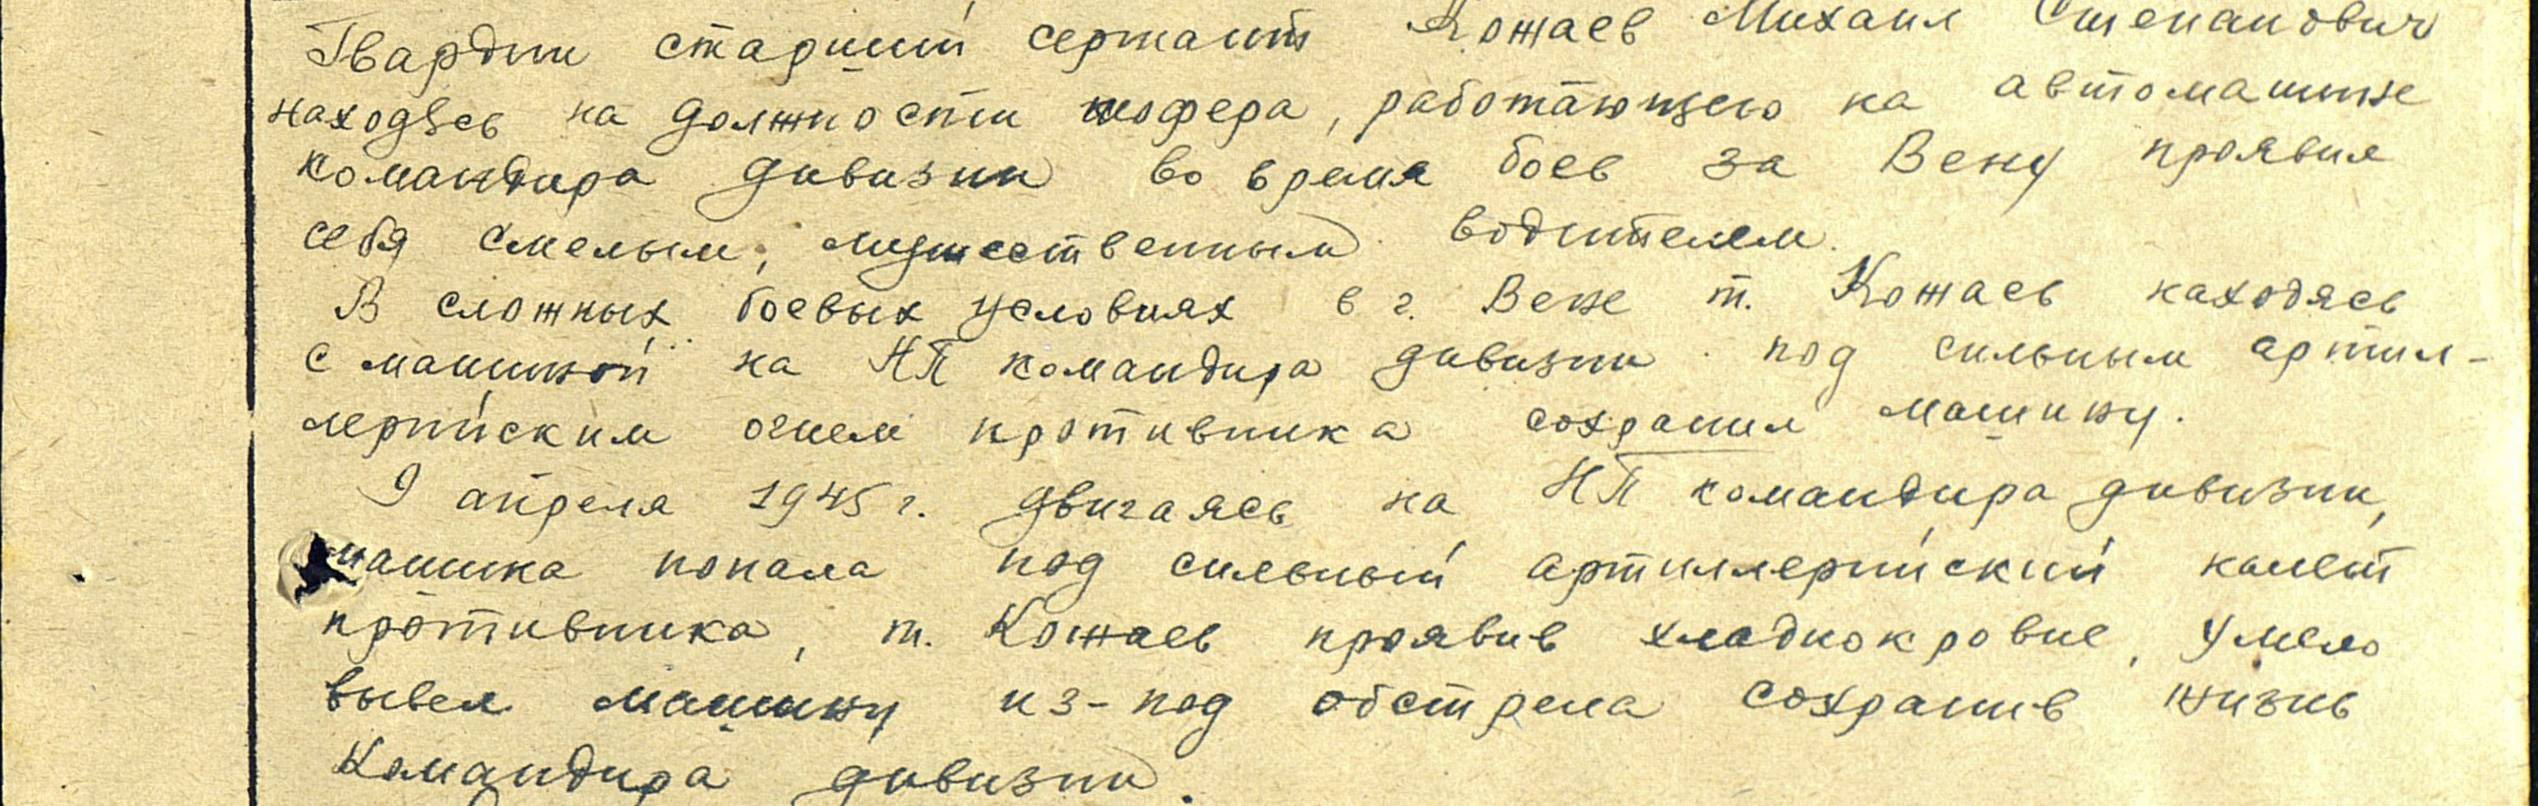 Гвардии старший сержант Кожаев Михаил Степанович
находясь на должности шофера, работающего на автомашине
командира дивизии во время боев за Вену проявил
себя смелым, мужественным водителем.
В сложных боевых условиях в г. Вене т. Кожаев находясь
с машиной на НП командира дивизии под сильным артил-
лерийским огнем противника сохранил машину.
9 апреля 1945 г. двигаясь на НП командира дивизии,
машина попала под сильный артиллерийский налет
противника, т. Кожаев проявив хладнокровие, умело
вывел машину из-под обстрела сохранив жизнь
Командира дивизии.